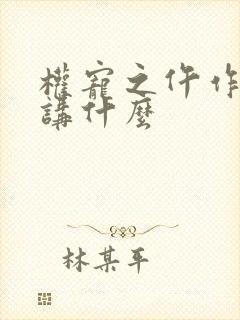 權寵之仵作
講什麼
林某平